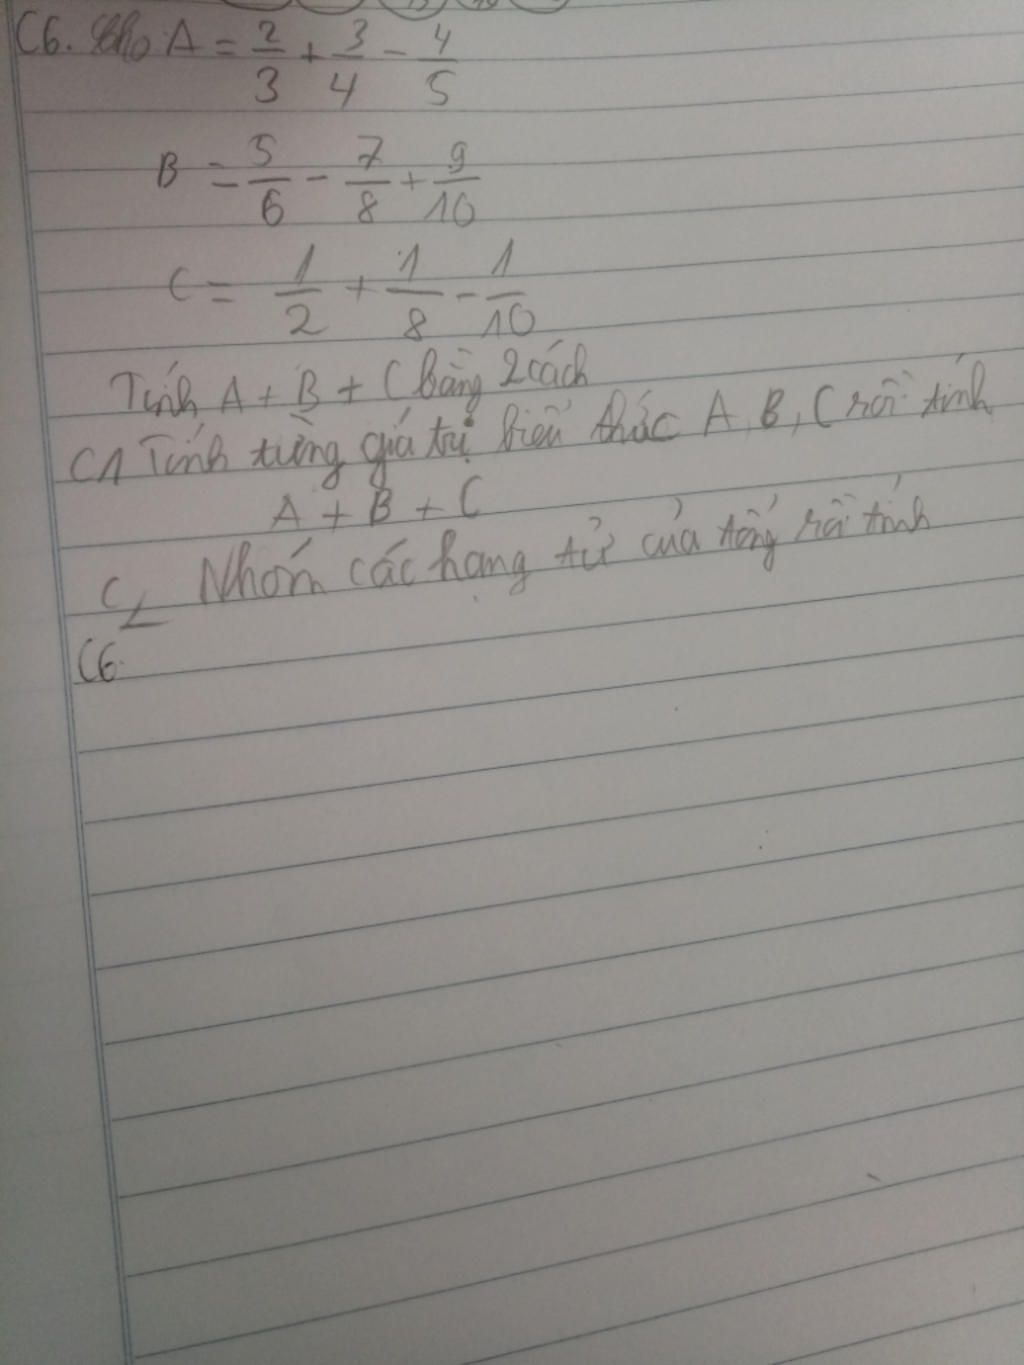 C6. Cho A = 2/3 + 3/4 - 4/5
B = 5/6 - 7/8 + 9/10
C = 1/2 + 1/8 - 1/10
Tính A + B + C bằng 2 cách
C1 Tính từng giá trị biểu thức A, B, C rồi tính
A + B + C
C2 Nhóm các hạng tử của tổng rồi tính
C6.